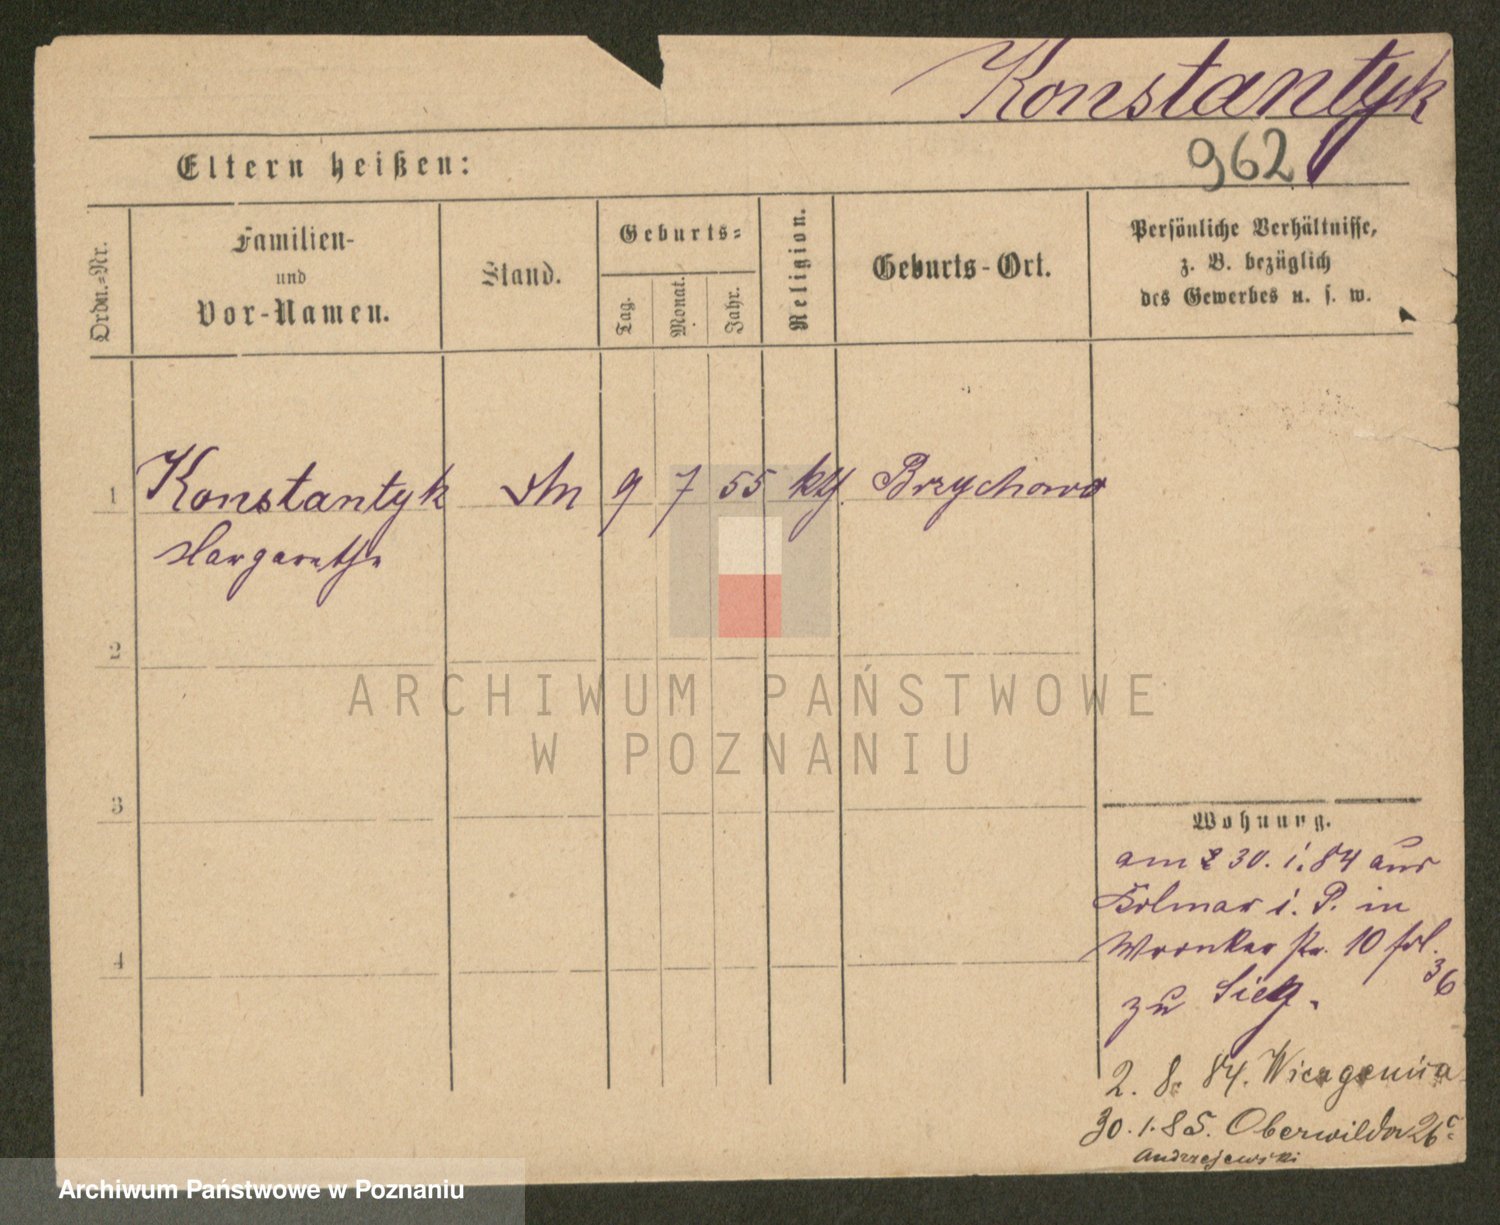 Konstantyk
962
Eltern heißen:
Ordn.=Nr.
Familien-
und
Vor-Namen.
Stand.
Geburts=
Tag.
Monat.
Jahr.
Religion.
Geburts-Ort.
Persönliche Verhältnisse,
z. B. bezüglich
des Gewerbes u. s. w.
1 Konstantyk 9 7 55 kth. Brzychowo
Margarethe
2
3
4
ARCHIWUM PAŃSTWOWE
W POZNANIU
Wohnung.
am 30. 1. 84 aus
Kolmar i. P. in
Wronker str. 10 fol.
36
zu
2. 8. 84.
30. 1. 85. Oberwilda 26c
Andrzejewski
Archiwum Państwowe w Poznaniu